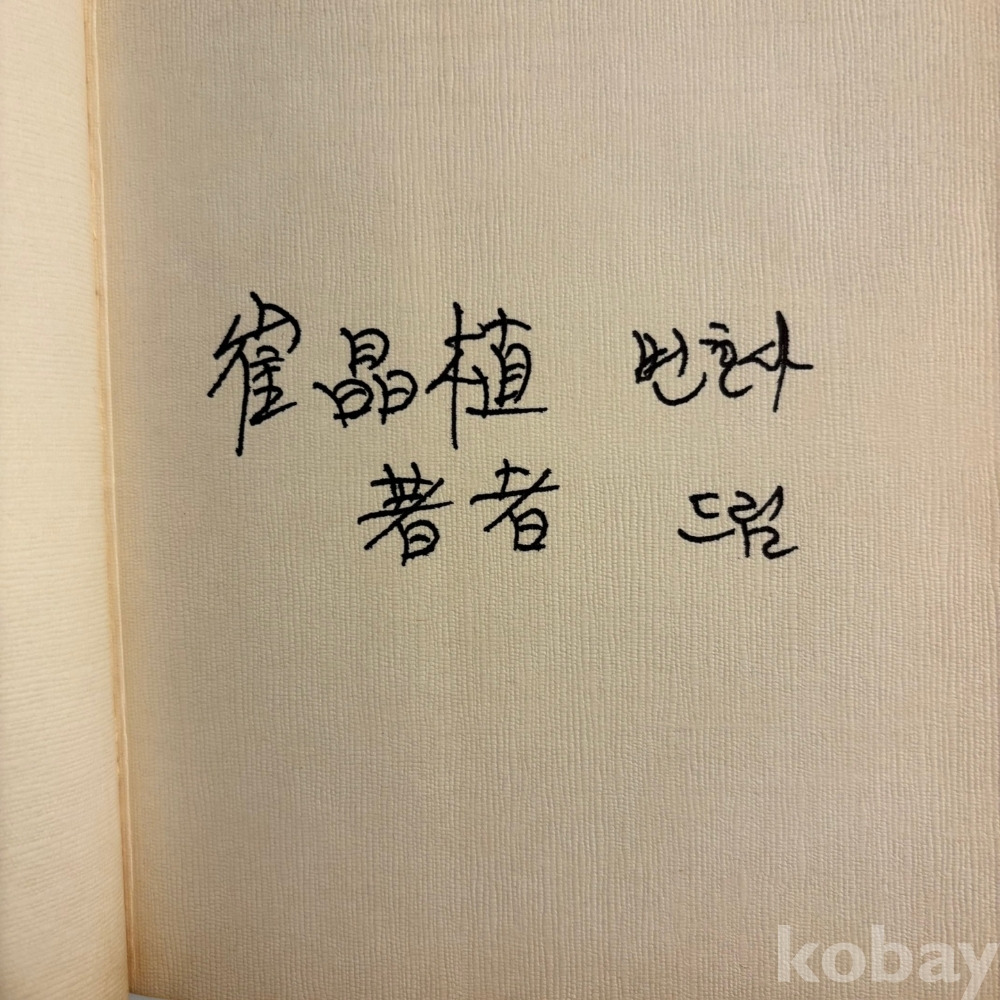 崔晶植 변호사
著者 드림
kobay